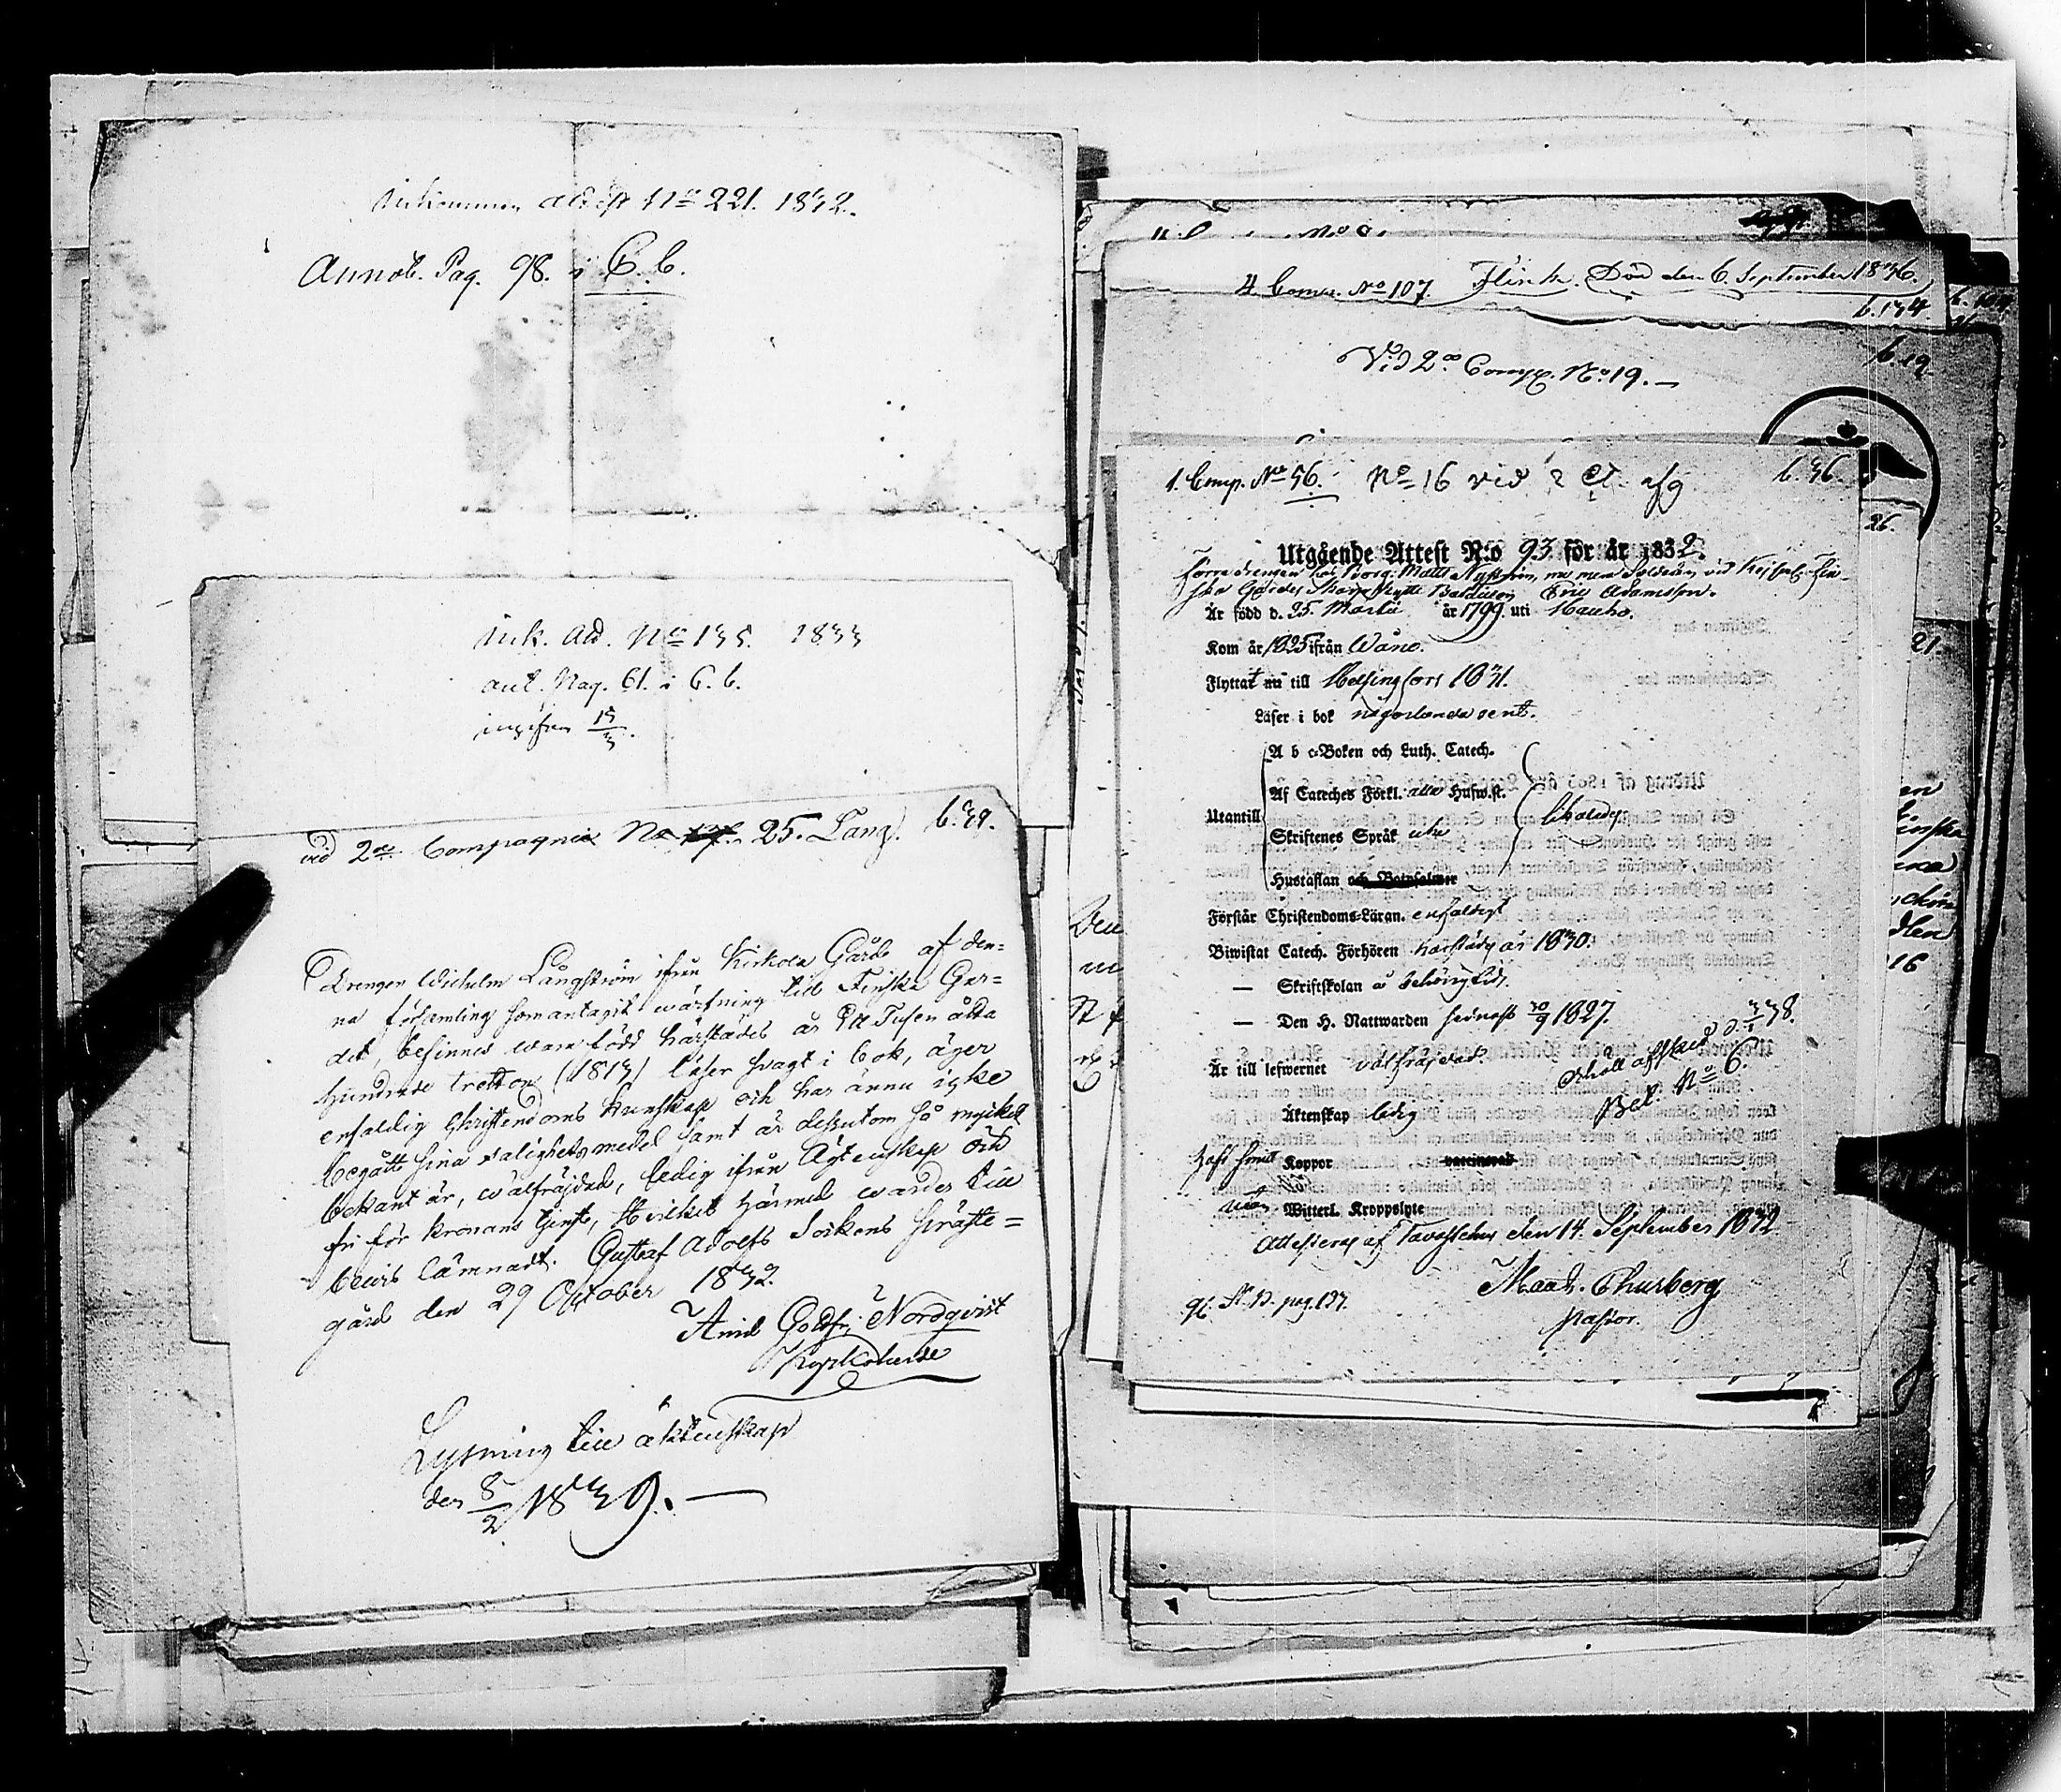 Inkommen att N:o 221. 1832.
Annot. Pag. 98. i C. b.
Ink. Att. No 135. 1833
ant. Pag. 61. i C. b.
15/3.
vid 2:a Compagniet No 25. Lång. b. 39.
Drengen Wilhelm Långström ifrån Kirkola Gård af den-
na församling som antagit wärfning till Finska Gar-
det, befinnes wara född härstädes år Ett Tusen åtta
hundrade tretton (1813) läser svagt i bok, äger
enfaldig Christendoms kunskap och har ännu icke
begått sina salighetsmedel samt är dessutom så mycket
bekant är, wälfräjdad, ledig ifrån Ägtenskap och
fri för kronans tjenst, Hvilket härmed wardes till
bewis lämnadt. Gustaf Adolfs Sockens Präste-
gård den 29 October 1832.
Nordqvist
Kyrkoherde
Lysning till äktenskap
den 8/2 1839.
4 Comp. No 107. Flink. Död den 6. September 1836.
b. 134
Vid 2:a Comp. No 19.
b. 19
1. Comp. No 56. No 16 vid 2 b. 36.
26.
Utgående Attest N:o 93 för år 1832.
Förre drengen hos Borg. Matts Nyström, nu mera Soldaten vid Kejserl. Fin-
ska Gardes Skarpskytte Bataillon Eric Adamsson.
Är född d. 25. Martii år 1799. uti Hauho.
Kom år 1825 ifrån Wånå.
Flyttat nu till Helsingfors 1831.
Läser i bok någorlunda rent.
A b c-Boken och Luth. Catech.
Af Cateches Förkl. alla Husw.st.
Utantill
Skriftenes Språk
Hustaflan och Botpsalmer
Förstår Christendoms-Läran. enfaldigt
Biwistat Catech. Förhören härstädes år 1830.
— Skriftskolan å behörig tid.
— Den H. Nattwarden sednast 30/9 1827.
Är till lefwernet wälfräjdad.
Erhöll afsked d. 3/1 38.
Bet. No 6.
Äktenskap ledig
Haft Koppor vaccinerad
Witterl. Kroppslyte
Attesteras af Tavastehus den 14. September 1832
Thurberg
Pastor.
pag. 137.